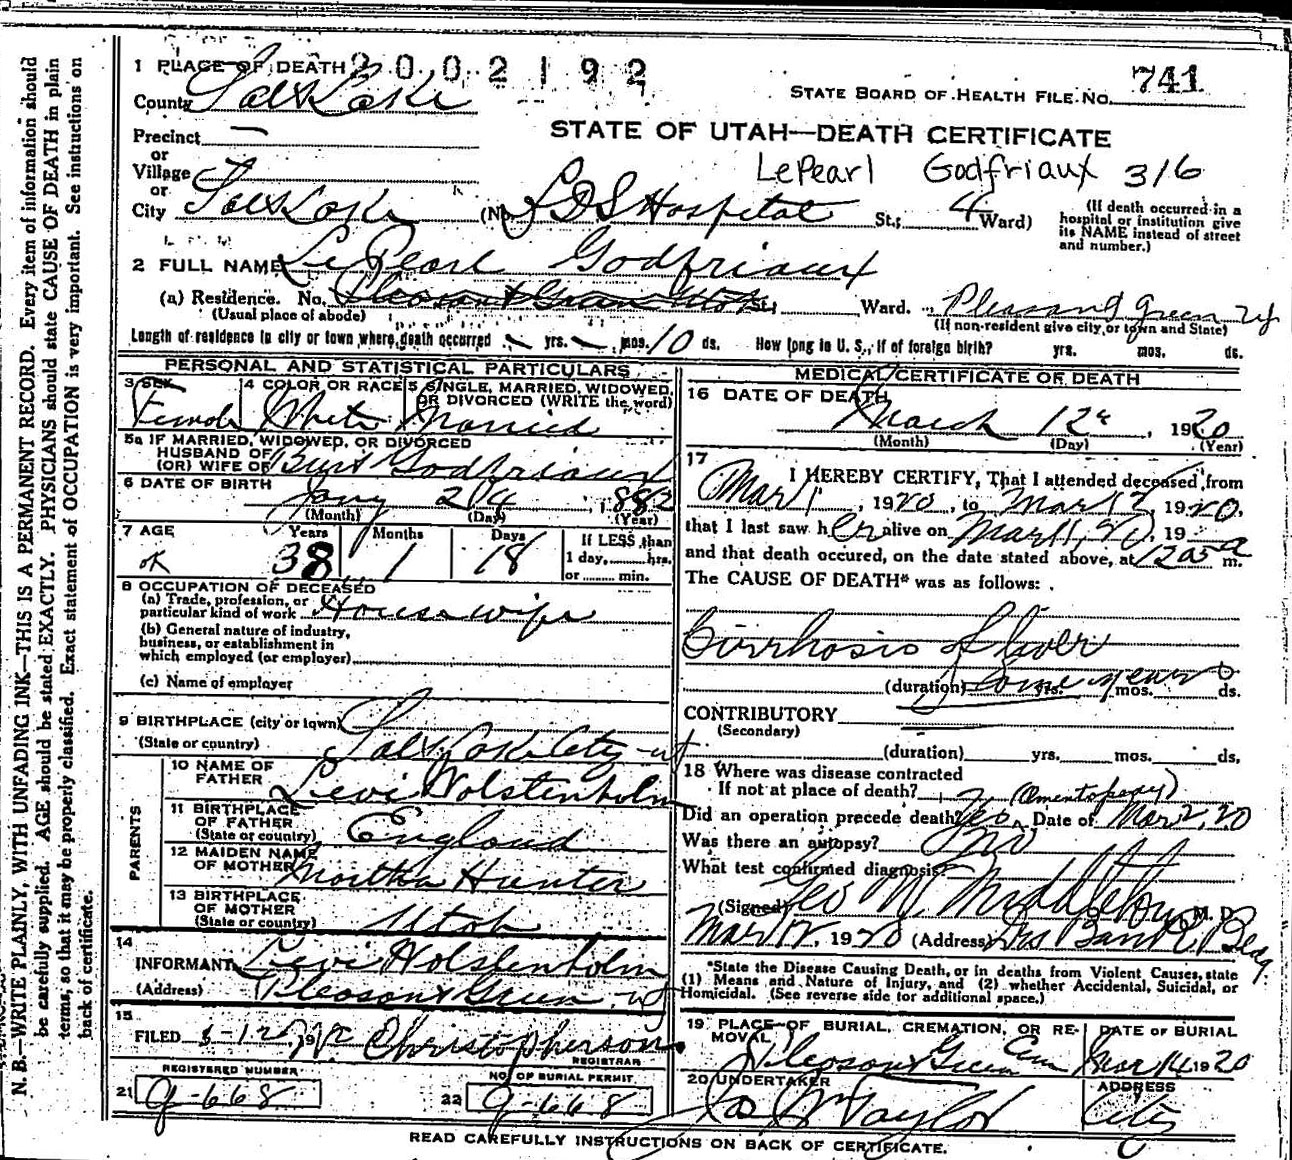 N. B.—WRITE PLAINLY, WITH UNFADING INK—THIS IS A PERMANENT RECORD. Every item of information should
be carefully supplied. AGE should be stated EXACTLY. PHYSICIANS should state CAUSE OF DEATH in plain
terms, so that it may be properly classified. Exact statement of OCCUPATION is very important. See instructions on
back of certificate.
2002192
1 PLACE OF DEATH
County Salt Lake
STATE BOARD OF HEALTH FILE NO. 741
Precinct —
or
Village
or
City Salt Lake
STATE OF UTAH—DEATH CERTIFICATE
LePearl Godfriaux 316
(No. LDS Hospital St.; 4 Ward)
(If death occurred in a
hospital or institution give
its NAME instead of street
and number.)
2 FULL NAME LePearl Godfriaux
(a) Residence. No. Pleasant Green Utah St., Ward. Pleasant Green Ut
(Usual place of abode) (If non-resident give city or town and State)
Length of residence in city or town where death occurred yrs. mos. 10 ds. How long in U. S., if of foreign birth? yrs. mos. ds.
PERSONAL AND STATISTICAL PARTICULARS
3 SEX Female
4 COLOR OR RACE White
5 SINGLE, MARRIED, WIDOWED,
OR DIVORCED (WRITE the word)
Married
5a IF MARRIED, WIDOWED, OR DIVORCED
HUSBAND OF
(OR) WIFE OF Burt Godfriaux
6 DATE OF BIRTH Jany 24, 1882
(Month) (Day) (Year)
7 AGE Years Months Days If LESS than
OK 38 1 18 1 day,......hrs.
or ...... min.
8 OCCUPATION OF DECEASED
(a) Trade, profession, or
particular kind of work Housewife
(b) General nature of industry,
business, or establishment in
which employed (or employer)
(c) Name of employer
9 BIRTHPLACE (city or town)
(State or country) Salt Lake City - Ut
PARENTS
10 NAME OF
FATHER Levi Wolstenholm
11 BIRTHPLACE
OF FATHER
(State or country) England
12 MAIDEN NAME
OF MOTHER Martha Hunter
13 BIRTHPLACE
OF MOTHER
(State or country) Utah
14
INFORMANT Levi Wolstenholm
(Address) Pleasant Green, Ut
15
FILED 3-12, 19 Christopherson
REGISTRAR
REGISTERED NUMBER
21 9-668
NO. OF BURIAL PERMIT
22 9-668
MEDICAL CERTIFICATE OF DEATH
16 DATE OF DEATH
March 12, 1920
(Month) (Day) (Year)
17
I HEREBY CERTIFY, That I attended deceased from
Mar 1, 1920, to Mar 12, 1920,
that I last saw her alive on Mar 11, 20, 19
and that death occured, on the date stated above, at 1205 a m.
The CAUSE OF DEATH* was as follows:
Cirrhosis of Liver
(duration) some years yrs. mos. ds.
CONTRIBUTORY
(Secondary)
(duration) yrs. mos. ds.
18 Where was disease contracted
If not at place of death? (Omentopexy)
Did an operation precede death? Yes Date of Mar 2, 20
Was there an autopsy? No
What test confirmed diagnosis?
(Signed) Geo W. Middleton, M. D.
Mar 12, 1920 (Address)
*State the Disease Causing Death, or in deaths from Violent Causes, state
(1) Means and Nature of Injury, and (2) whether Accidental, Suicidal, or
Homicidal. (See reverse side for additional space.)
19 PLACE OF BURIAL, CREMATION, OR RE-
MOVAL
Pleasant Green Cem
DATE OF BURIAL
Mar 14 1920
20 UNDERTAKER
Taylor
ADDRESS
City
READ CAREFULLY INSTRUCTIONS ON BACK OF CERTIFICATE.